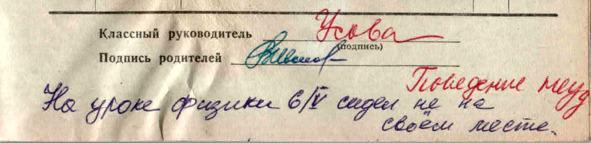 Классный руководитель Усова
(подпись)
Подпись родителей
Поведение неуд
На уроке физики 6/V сидел не на
своём месте.